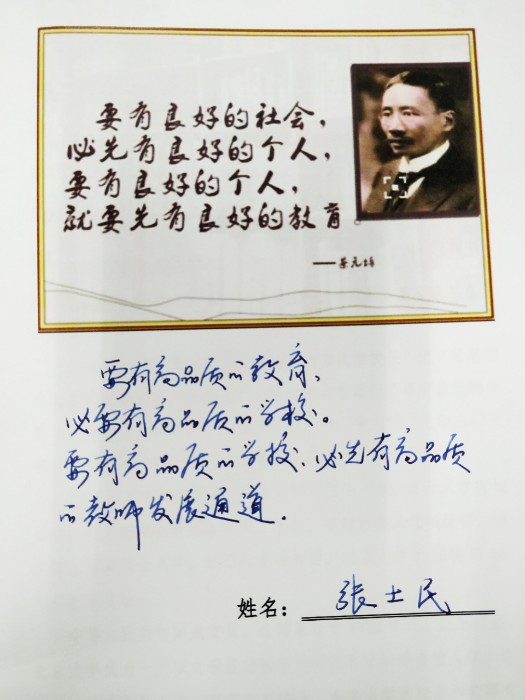 要有良好的社会，
必先有良好的个人，
要有良好的个人，
就要先有良好的教育
——蔡元培
要有高品质的教育，
必要有高品质的学校。
要有高品质的学校、必先有高品质
的教师发展通道.
姓名： 张士民